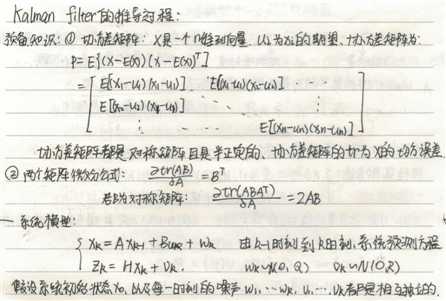 Kalman filter的推导过程:
预备知识: ① 协方差矩阵: X是一个n维列向量, ui为xi的期望, 协方差矩阵为:
P=E{(X-E(X))(X-E(X))ᵀ}
= [ E[(x₁-u₁)(x₁-u₁)] E[(x₁-u₁)(x₂-u₂)] ······
E[(x₂-u₂)(x₁-u₁)]
E[(xn-un)(xn-un)] ]
协方差矩阵都是对称矩阵且是半正定的、协方差矩阵的tr为X的均方误差
② 两个矩阵微分公式: ∂tr(AB)/∂A = Bᵀ
若B为对称矩阵: ∂tr(ABAT)/∂A = 2AB
一 系统模型:
{ Xk = A Xk-1 + Buk + wk 由k-1时刻到k时刻,系统预测方程
Zk = H Xk + Vk. wk~N(0, Q) Vk~N(0, R)
假设系统初始状态X₀, 以及每一时刻的噪声w₁,···wk, v₁,···vk都是相互独立的.